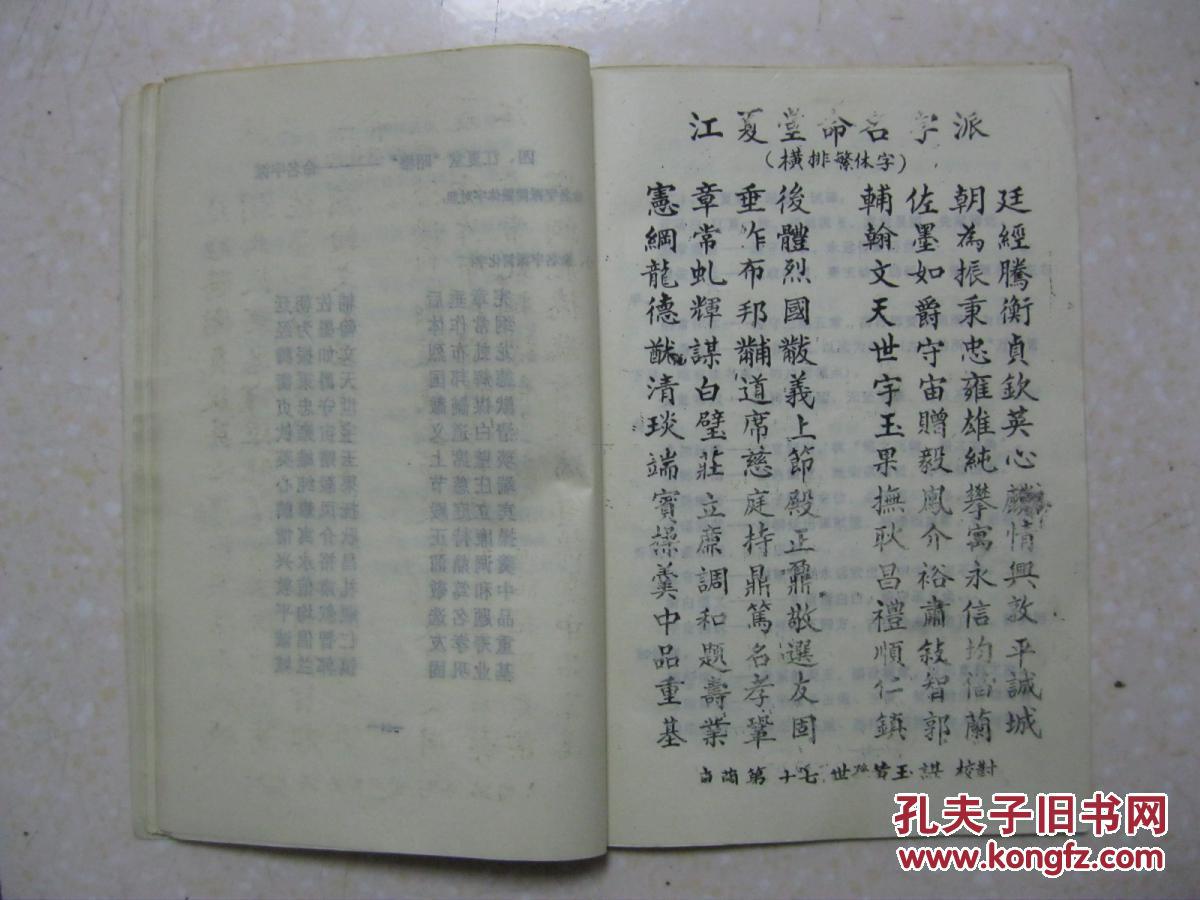 江夏堂命名字派
（横排繁体字）
憲章垂後 輔佐朝廷
綱常作體 翰墨為經
龍虬布烈 文如振騰
德輝邦國 天爵秉衡
猷謀黼黻 世守忠貞
清白道義 宇宙雍欽
琰璧席上 玉贈雄英
端莊慈節 果毅純心
賓立庭殿 撫鳳攀麟
操廉持正 耿介寓情
羹調鼎鼐 昌裕永興
中和篤敬 禮肅信敦
品題名選 順敍均平
重壽孝友 仁智涵誠
基業鞏固 鎮郭蘭城
第十七世 玉謀 校對
孔夫子旧书网
www.kongfz.com